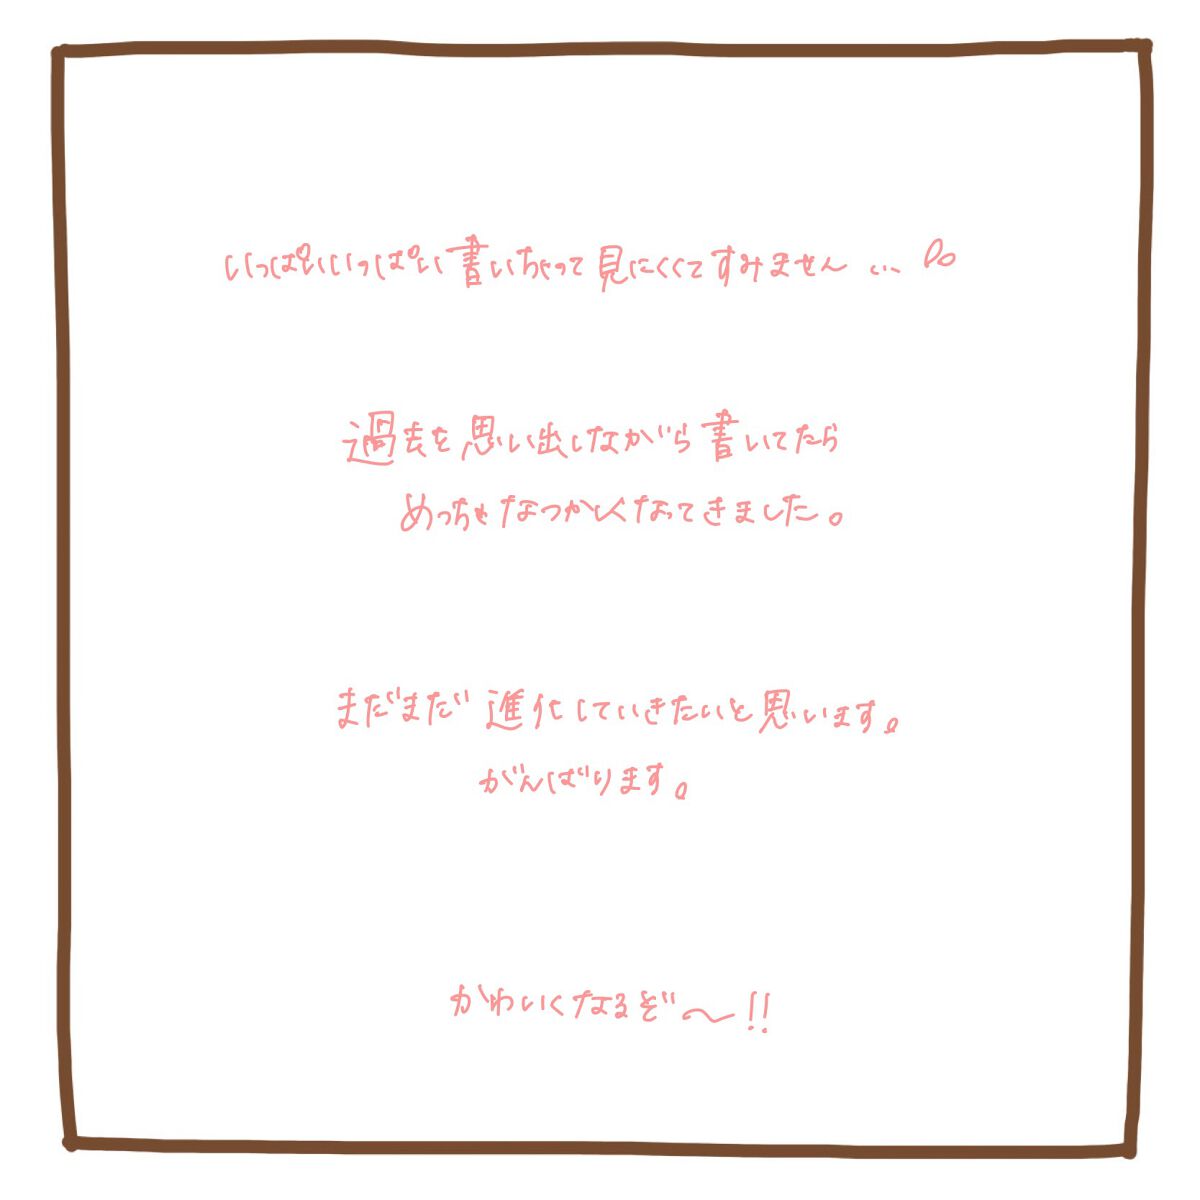 いっぱいいっぱい書いちゃって見にくくてすみません...
過去を思い出しながら書いてたら
めっちゃなつかしくなってきました。
まだまだ進化していきたいと思います。
がんばります。
かわいくなるぞ〜!!